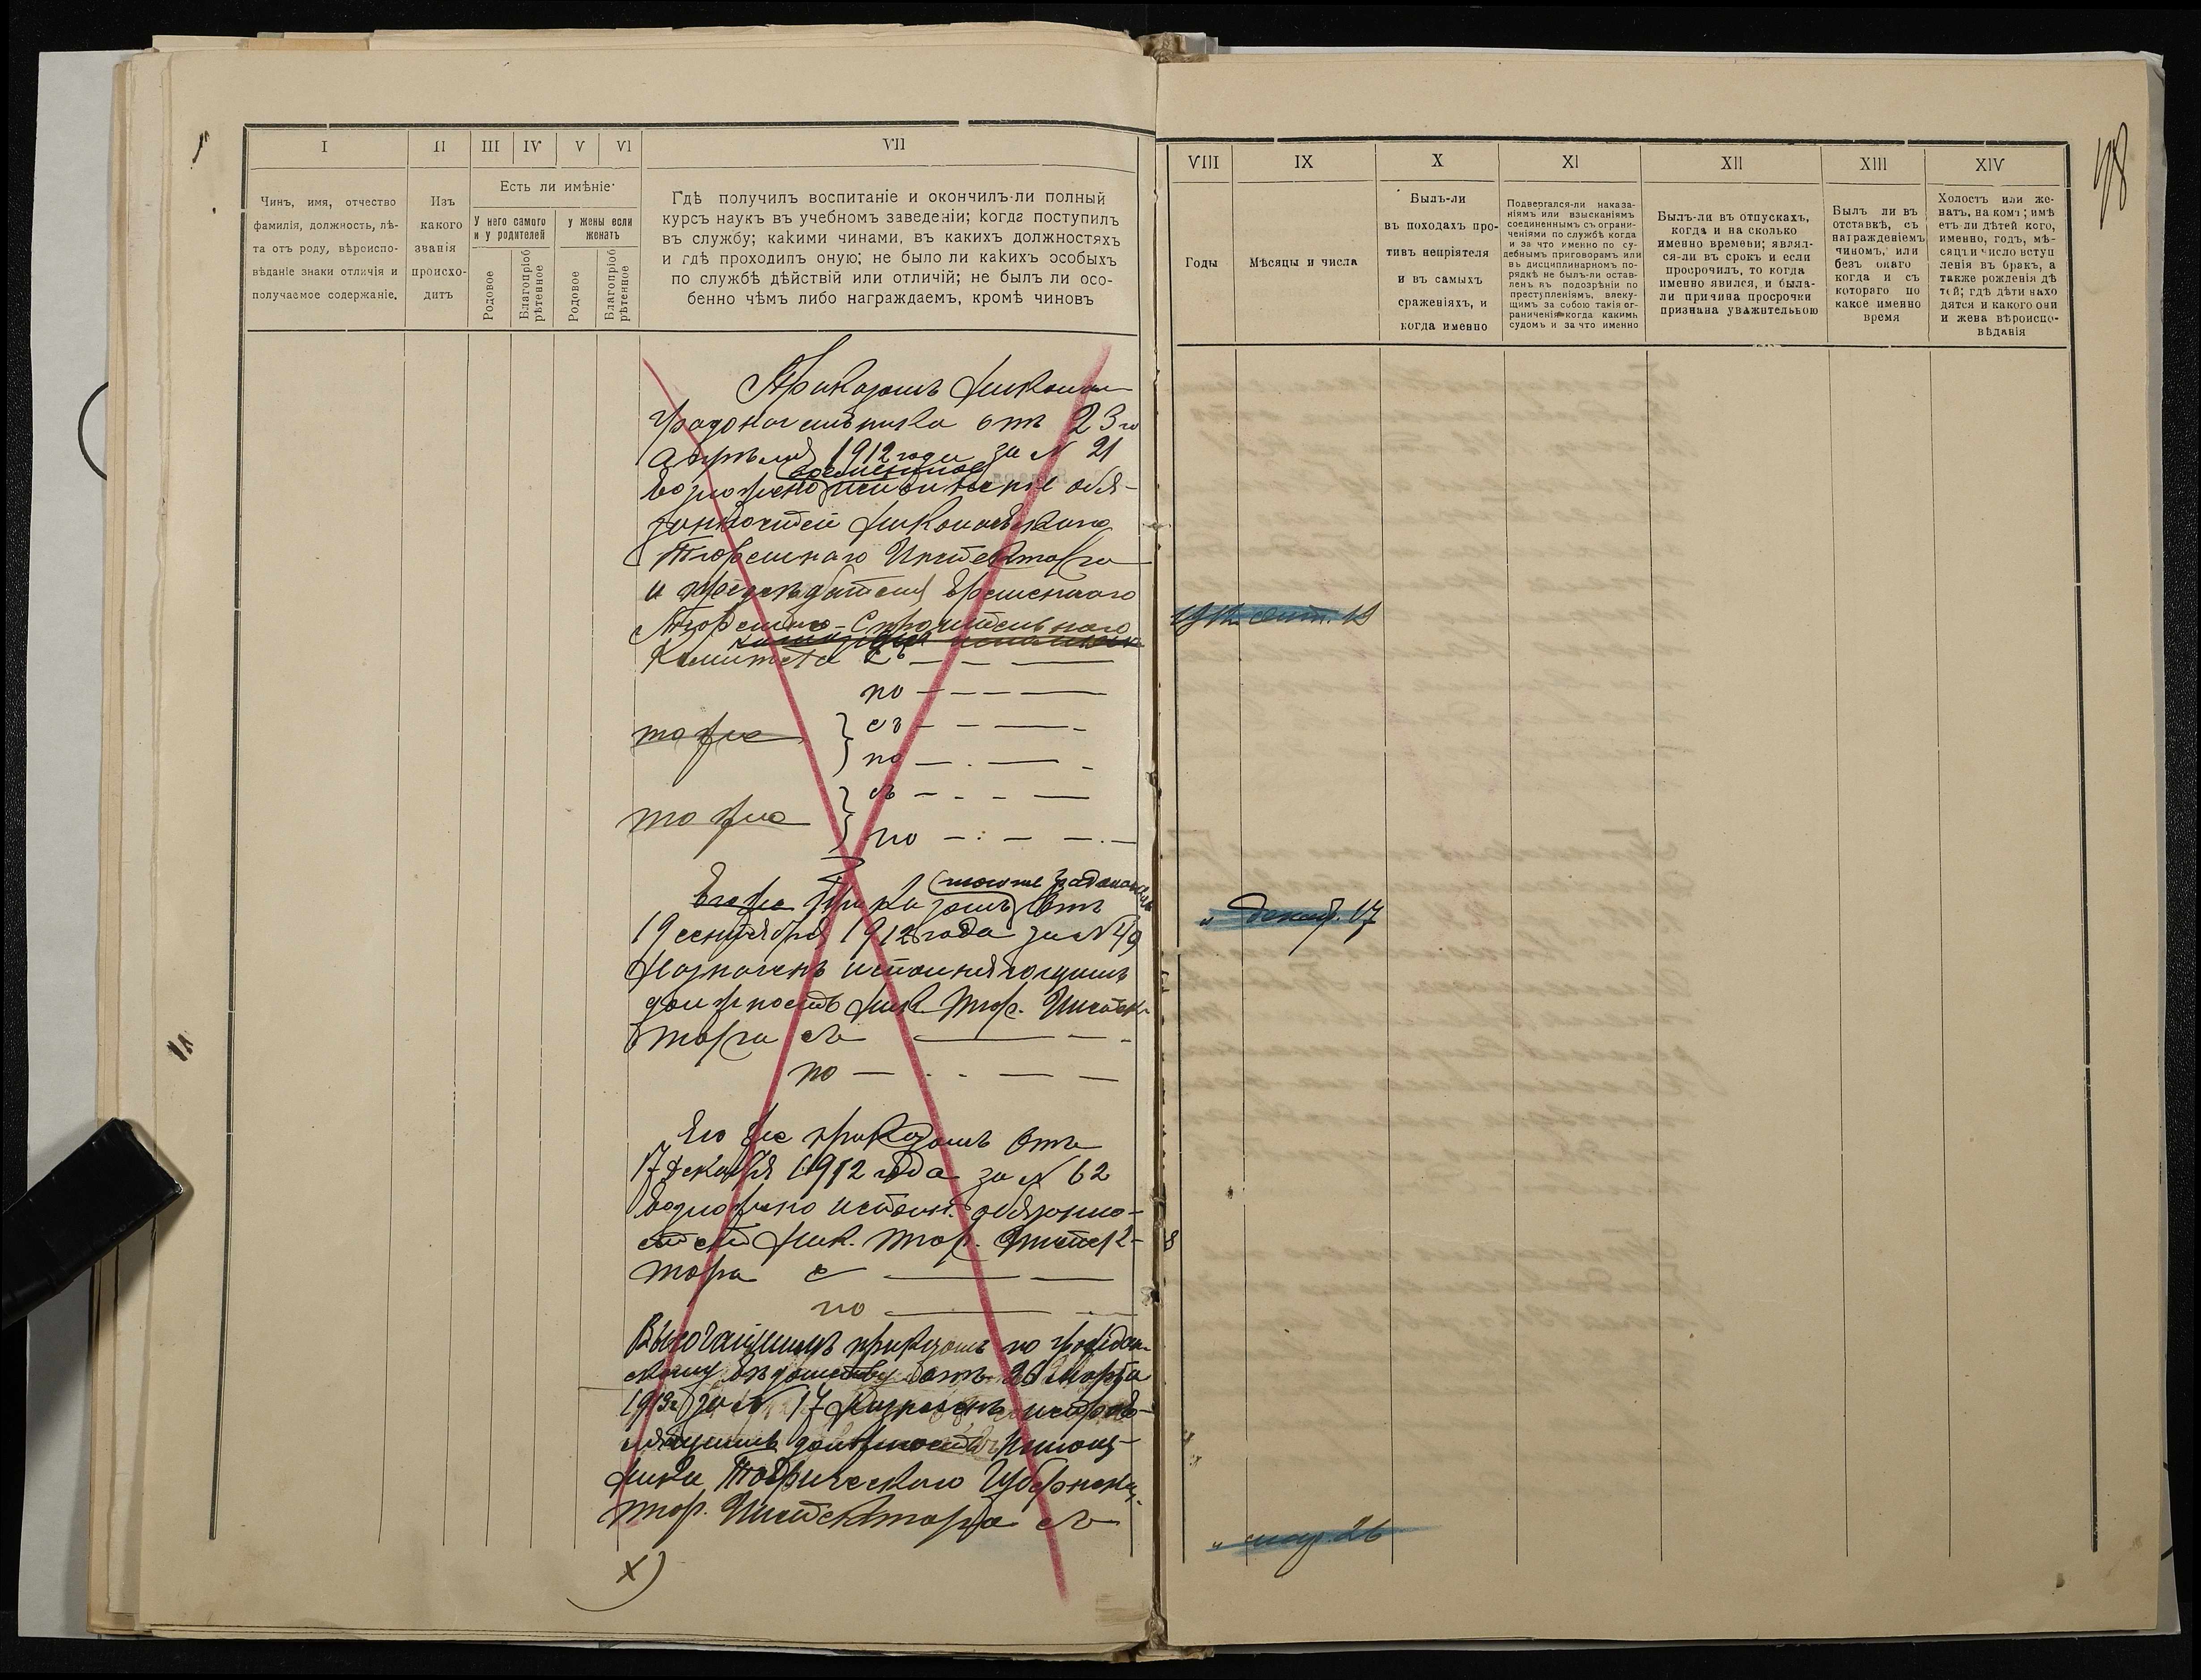 I II III IV V VI VII
Есть ли имѣніе
Чинъ, имя, отчество
фамилія, должность, лѣ-
та отъ роду, вѣроиспо-
вѣданіе знаки отличія и
получаемое содержаніе.
Изъ
какого
званія
происхо-
дитъ
У него самого
и у родителей
у жены если
женатъ
Родовое
Благопріоб
рѣтенное
Родовое
Благопріоб
рѣтенное
Гдѣ получилъ воспитаніе и окончилъ-ли полный
курсъ наукъ въ учебномъ заведеніи; когда поступилъ
въ службу; какими чинами, въ какихъ должностяхъ
и гдѣ проходилъ оную; не было ли какихъ особыхъ
по службѣ дѣйствій или отличій; не былъ ли осо-
бенно чѣмъ либо награждаемъ, кромѣ чиновъ
Приказомъ Николаев
Градоначальника отъ 23го
Апрѣля 1912 года за N 21
временное
Возложено исполненіе обя-
занностей Николаевскаго
Тюремнаго Инспектора
и предсѣдателя временнаго
Тюремно-Строительнаго
Комитета съ
по
то же съ
по
то же съ
по
того же Градоначаль
Его же Приказомъ отъ
19 сентября 1912 года за N 49
Назначенъ исполняющимъ
должность Ник. Тюр. Инспек-
тора съ
по
Его же приказомъ отъ
17 декабря 1912 года за N 62
Возложено исполн. обязанно-
стей Ник. Тюр. Инспек-
тора с
по
Высочайшимъ приказомъ по граждан-
скому вѣдомству отъ 26 Марта
1913г. за N 17 Назначенъ исправ-
ляющимъ должность Помощ-
ника Таврическаго Губернск.
Тюр. Инспектора съ
х)
VIII IX X XI XII XIII XIV
Годы
Мѣсяцы и числа
Былъ-ли
въ походахъ про-
тивъ непріятеля
и въ самыхъ
сраженіяхъ, и
когда именно
Подвергался-ли наказа-
ніямъ или взысканіямъ
соединеннымъ съ ограни-
ченіями по службѣ когда
и за что именно по су-
дебнымъ приговорамъ или
въ дисциплинарномъ по-
рядкѣ не былъ-ли остав-
ленъ въ подозрѣніи по
преступленіямъ, влеку-
щимъ за собою такія ог-
раниченія когда какимъ
судомъ и за что именно
Былъ-ли въ отпускахъ,
когда и на сколько
именно времени; являл-
ся-ли въ срокъ и если
просрочилъ, то когда
именно явился, и была-
ли причина просрочки
признана уважительною
Былъ ли въ
отставкѣ, съ
награжденіемъ
чиномъ, или
безъ онаго
когда и съ
котораго по
какое именно
время
Холостъ или же-
натъ, на комъ; имѣ
етъ ли дѣтей кого,
именно, годъ, мѣ-
сяцъ и число вступ
ленія въ бракъ, а
также рожденія дѣ
тей; гдѣ дѣти нахо
дятся и какого они
и жена вѣроиспо-
вѣданія
1912 сент. 19
„ декаб. 17
„ мар. 26